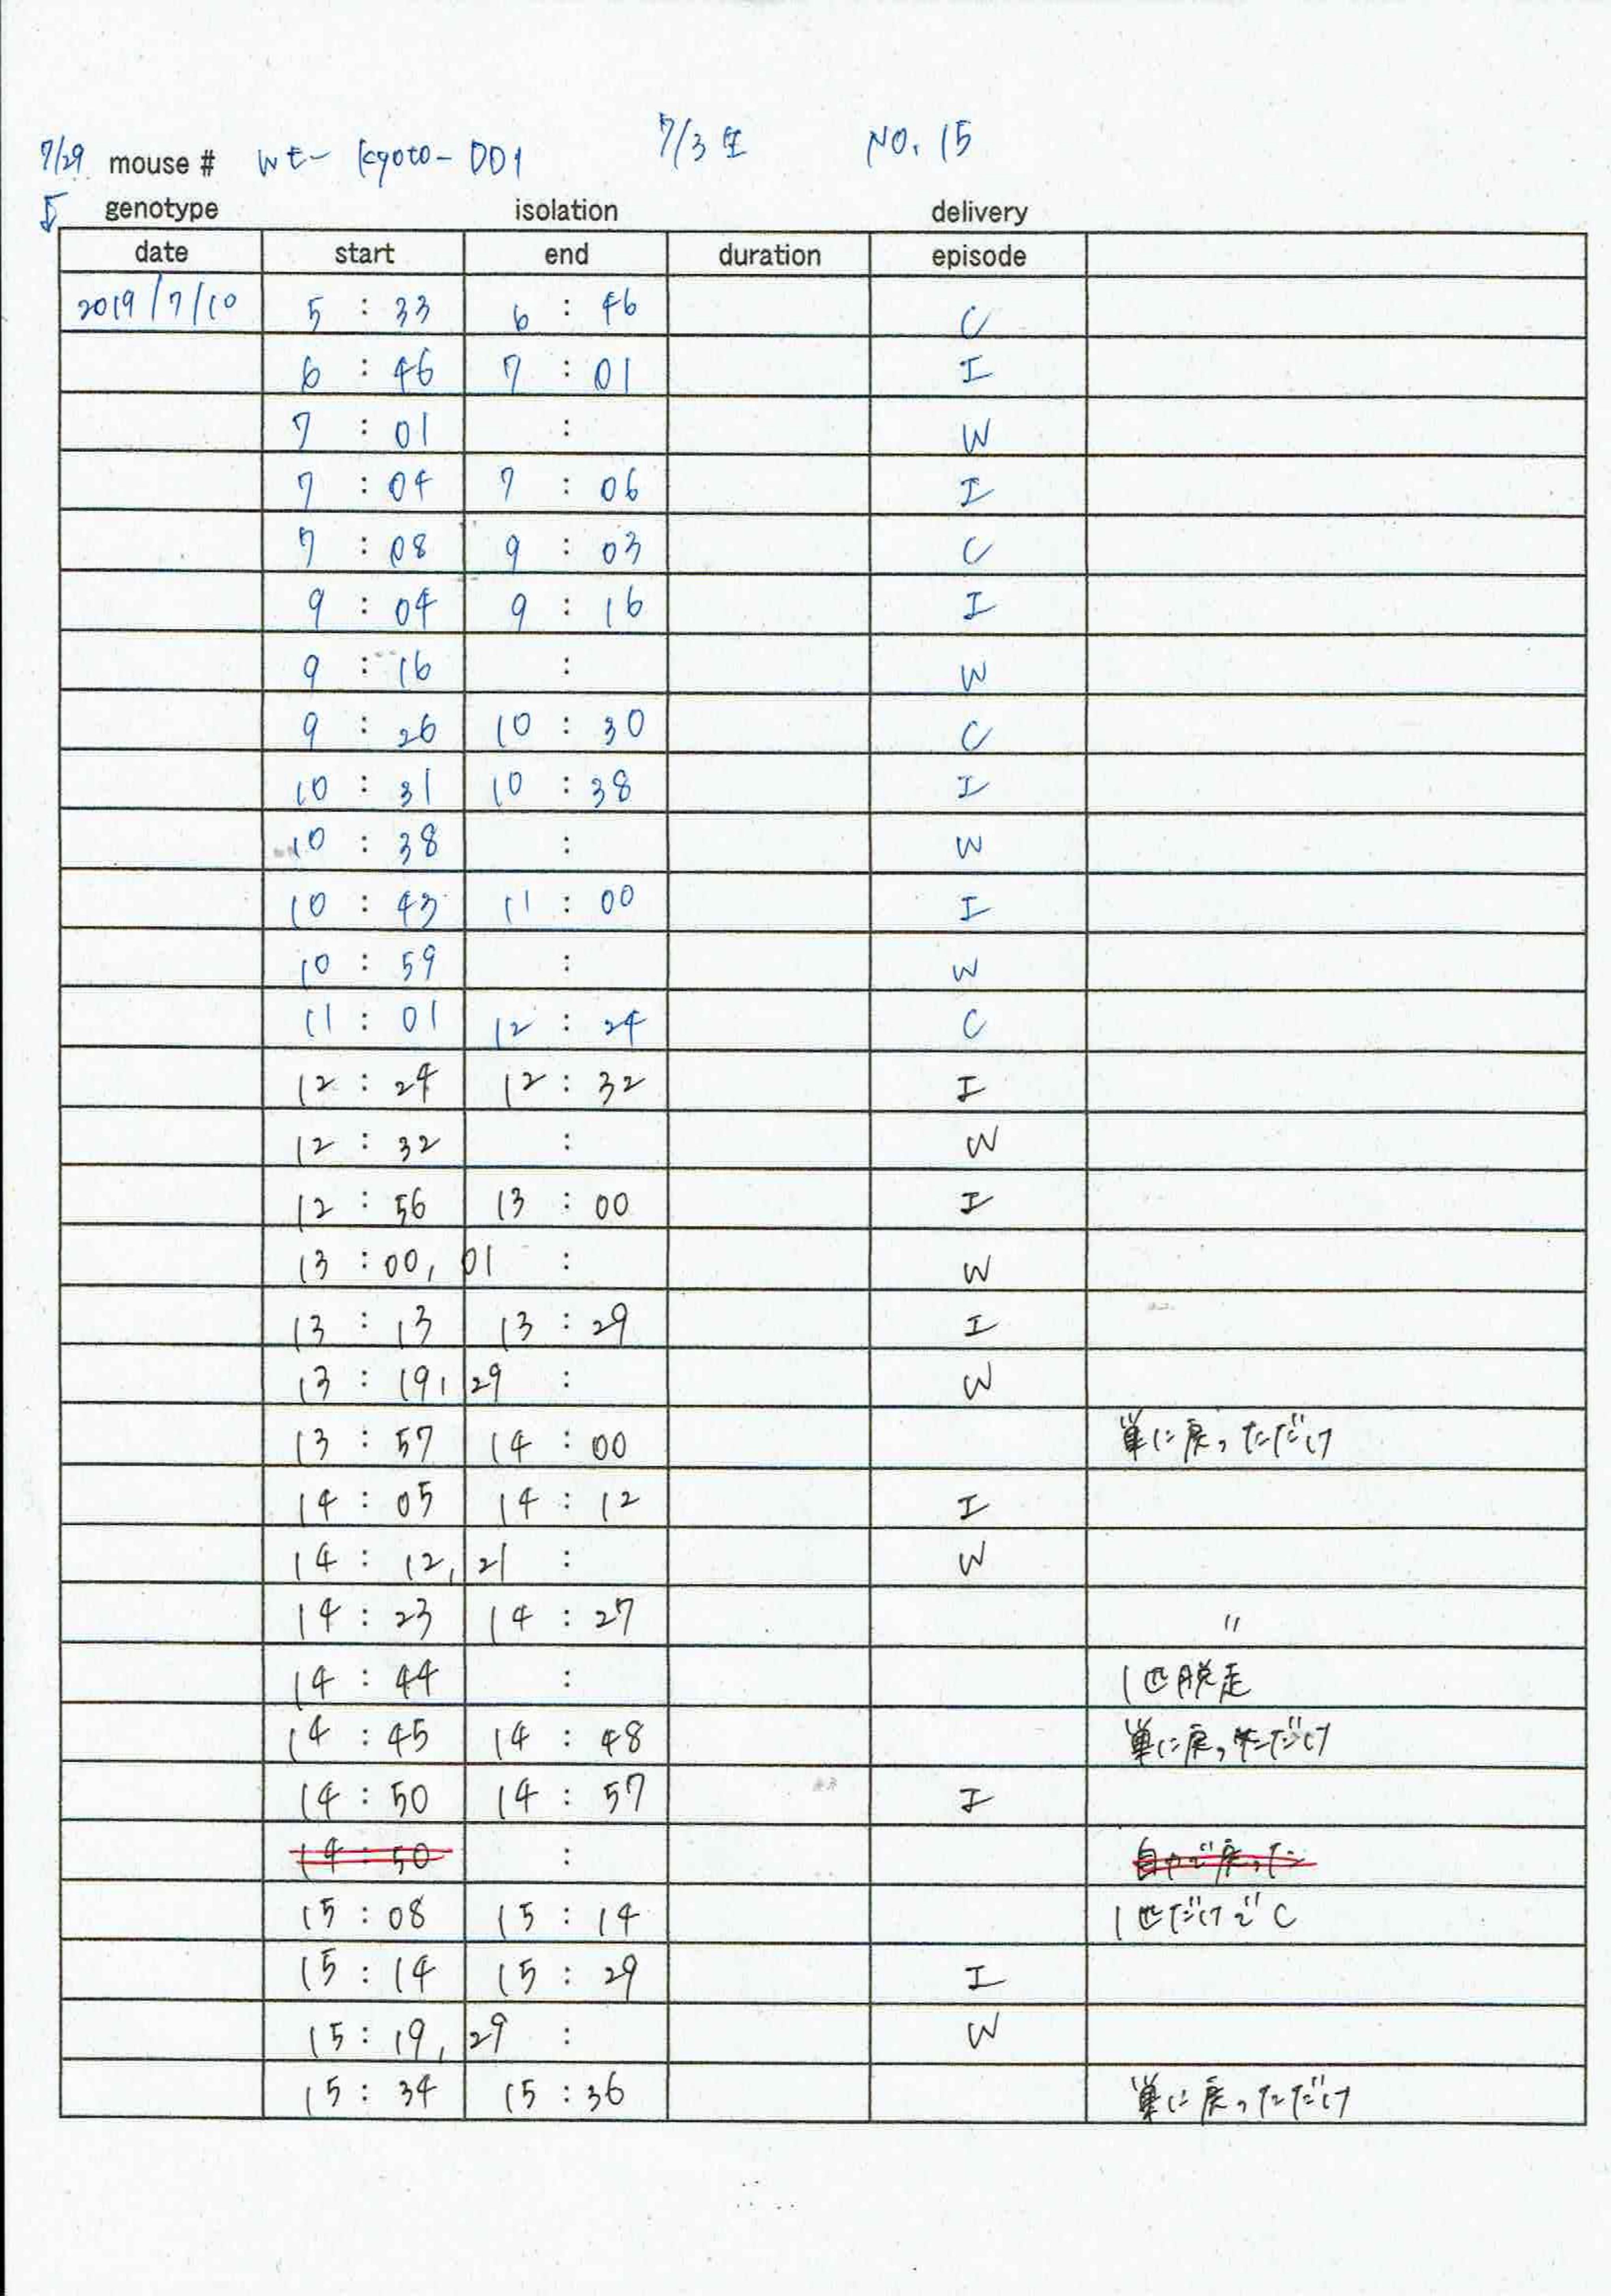 7/3生 NO. 15
7/29 mouse # wt- kyoto- DD1
genotype isolation delivery
date start end duration episode
2019/7/10 5 : 33 6 : 46 C
6 : 46 7 : 01 I
7 : 01 : W
7 : 04 7 : 06 I
7 : 08 9 : 03 C
9 : 04 9 : 16 I
9 : 16 : W
9 : 26 10 : 30 C
10 : 31 10 : 38 I
10 : 38 : W
10 : 43 11 : 00 I
10 : 59 : W
11 : 01 12 : 24 C
12 : 24 12 : 32 I
12 : 32 : W
12 : 56 13 : 00 I
13 : 00, 01 : W
13 : 13 13 : 29 I
13 : 19, 29 : W
13 : 57 14 : 00 巣に戻っただけ
14 : 05 14 : 12 I
14 : 12, 21 : W
14 : 23 14 : 27 〃
14 : 44 : 1匹脱走
14 : 45 14 : 48 巣に戻っただけ
14 : 50 14 : 57 I
14 : 50 : 自力で戻った
15 : 08 15 : 14 1匹だけでC
15 : 14 15 : 29 I
15 : 19, 29 : W
15 : 34 15 : 36 巣に戻っただけ